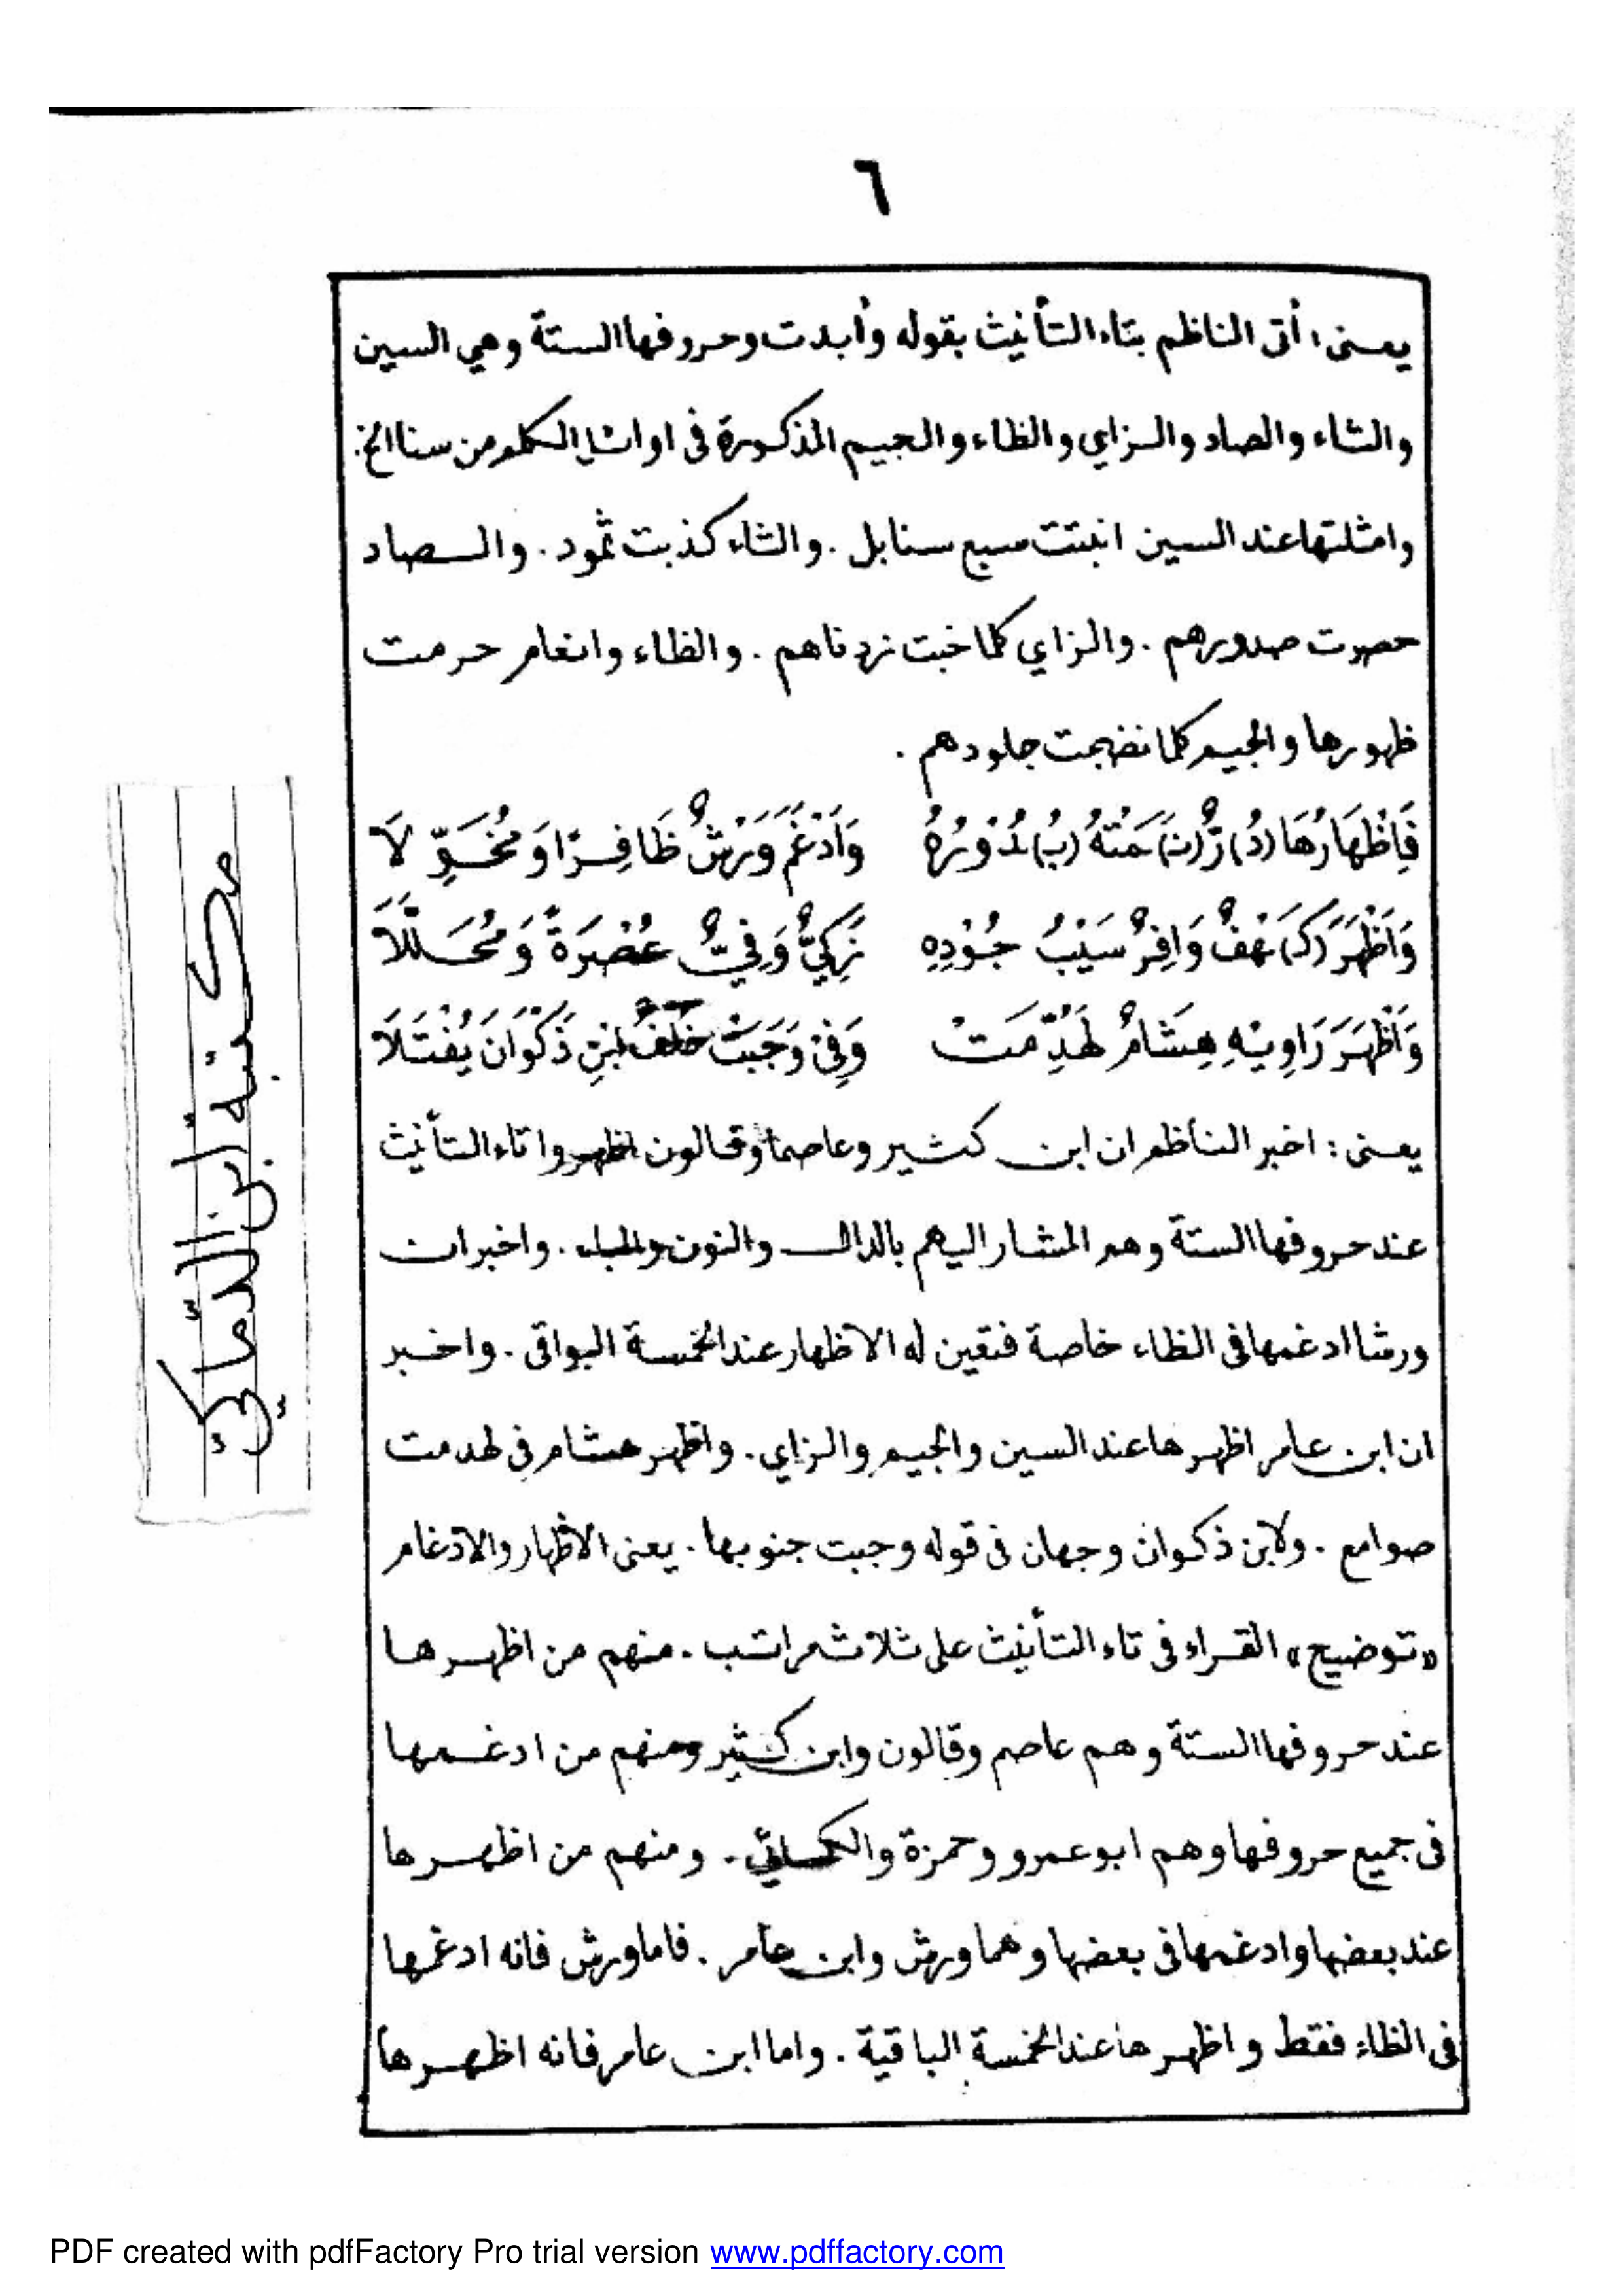 ٦
يعنى: أتى الناظم بتاء التأنيث بقوله وأبدت وحروفها الستة وهي السين
والثاء والصاد والزاي والظاء والجيم المذكورة فى اوائل الكلم من سنا الخ.
وامثلتها عند السين انبتت سبع سنابل . والثاء كذبت ثمود . والصاد
حصرت صدورهم . والزاي كلما خبت زدناهم . والظاء وانعام حرمت
ظهورها والجيم كلما نضجت جلودهم .
فَإِظْهَارُهَا (دُ) رٌّ (نَ) مَتْهُ (بُ) دُوْرُهُ وَأَدْغَمَ وَرْشٌ ظَافِرًا وَمُخَوِّلَا
وَأَظْهَرَ (كَ) هْفٌ وَافِرٌ سَيْبُ جُوْدِهِ زَكِيٌّ وَفِيٌّ عُصْرَةً وَمُحَلَّلَا
وَأَظْهَرَ رَاوِيْهِ هِشَامٌ لَهُدِّمَتْ وَفِى وَجَبَتْ خُلْفُ ابْنِ ذَكْوَانَ يُفْتَلَا
يعنى : اخبر الناظم ان ابن كثير وعاصما وقالون اظهروا تاء التأنيث
عند حروفها الستة وهم المشار اليهم بالدال والنون والباء . واخبر ان
ورشا ادغمها فى الظاء خاصة فتعين له الاظهار عند الخمسة البواقى . واخبر
ان ابن عامر اظهرها عند السين والجيم والزاي . واظهر هشام فى لهدمت
صوامع . ولابن ذكوان وجهان فى قوله وجبت جنوبها . يعنى الاظهار والادغام
«توضيح» القراء فى تاء التأنيث على ثلاث مراتب . منهم من اظهرها
عند حروفها الستة وهم عاصم وقالون وابن كثير ومنهم من ادغمها
فى جميع حروفها وهم ابو عمرو وحمزة والكسائي . ومنهم من اظهرها
عند بعضها وادغمها فى بعضها وهما ورش وابن عامر . فاما ورش فانه ادغمها
فى الظاء فقط واظهرها عند الخمسة الباقية . واما ابن عامر فانه اظهرها
مكتبة ابن
PDF created with pdfFactory Pro trial version www.pdffactory.com